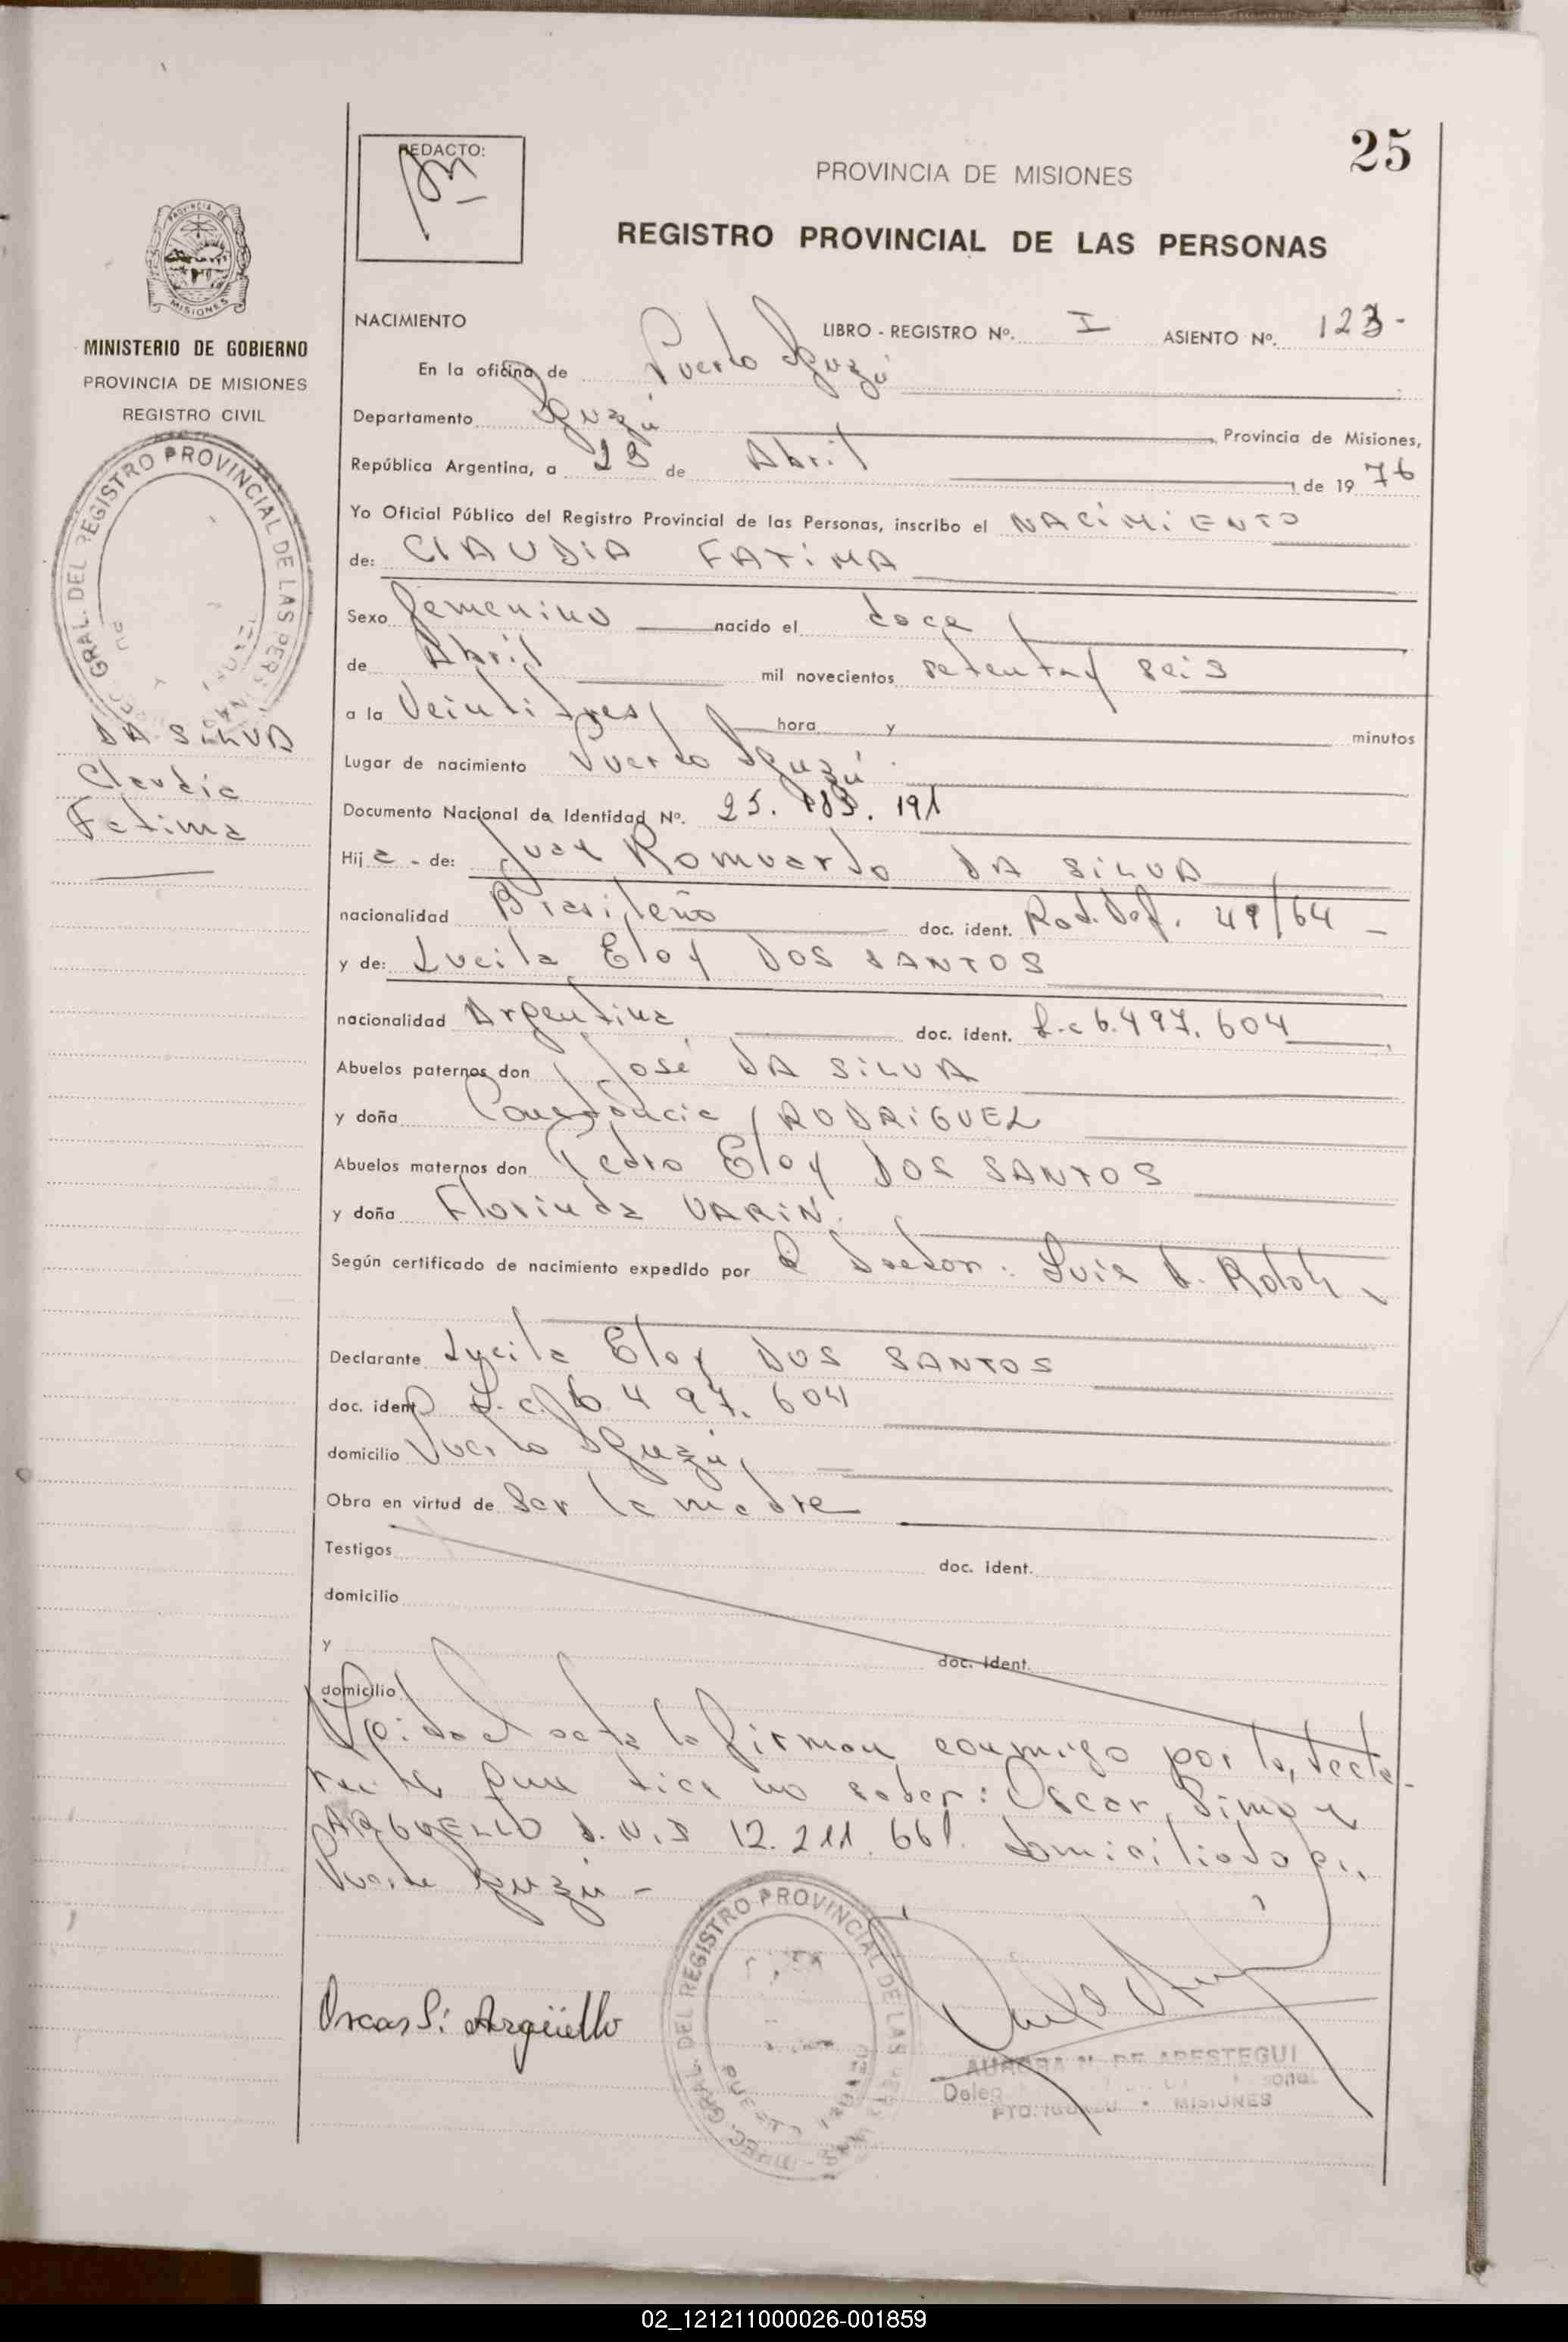 25
REDACTO:
PROVINCIA DE MISIONES
REGISTRO PROVINCIAL DE LAS PERSONAS
PROVINCIA DE
MISIONES
MINISTERIO DE GOBIERNO
PROVINCIA DE MISIONES
REGISTRO CIVIL
GRAL. DEL REGISTRO PROVINCIAL DE LAS PERS
DA SILVA
Claudia
Fatima
NACIMIENTO LIBRO - REGISTRO Nº. I ASIENTO Nº. 123-
En la oficina de Puerto Iguazú
Departamento Iguazú, Provincia de Misiones,
República Argentina, a de Abril, de 19 76
Yo Oficial Público del Registro Provincial de las Personas, inscribo el NACIMIENTO
de: CLAUDIA FATIMA
Sexo femenino nacido el doce
de Abril mil novecientos setenta y seis
a la Veintitres hora y minutos
Lugar de nacimiento Puerto Iguazú.
Documento Nacional de Identidad Nº. 25. 191
Hij a - de: Juan Romuardo DA SILVA
nacionalidad Brasileño doc. ident. 49/64 -
y de: Lucila Eloy DOS SANTOS
nacionalidad Argentina doc. ident. L.c 6.497.604
Abuelos paternos don José DA SILVA
y doña Constancia RODRIGUEZ
Abuelos maternos don Pedro Eloy DOS SANTOS
y doña Florinda VARIN.
Según certificado de nacimiento expedido por el Doctor: Luis A.
Declarante Lucila Eloy DOS SANTOS
doc. ident L.c. 6.497.604
domicilio Puerto Iguazú
Obra en virtud de Ser la madre
Testigos doc. ident.
domicilio
y doc. ident.
domicilio
Leida el acta la firman conmigo por la, decla-
rante que dice no saber: Oscar Simon
ARGUELLO D.N.I 12.211.661. domiciliado en
Puerto Iguazú -
Oscar S. Argüello
DIREC. GRAL. DEL REGISTRO PROVINCIAL DE LAS PERS
AURORA M. DE ARESTEGUI
Deleg
PTO. IGUAZU - MISIONES
02_121211000026-001859